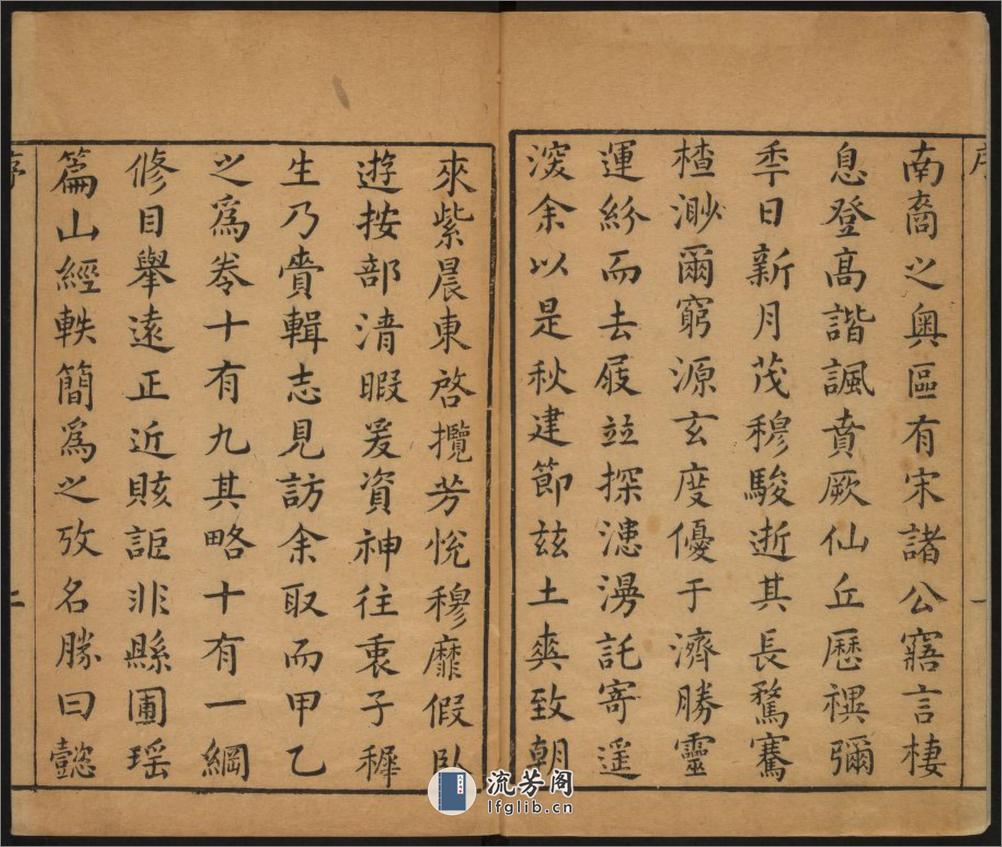 序
一
南裔之奥區有宋諸公寤言棲
息登髙諧諷賁厥仙丘歴禩彌
秊日新月茂穆駿逝其長騖騫
楂渺爾窮源玄度優于濟勝靈
運紛而去屐並探漶漫託寄遥
深余以是秋建節兹土奭致朝
來紫晨東啓攬芳悅穆靡假卧
遊按部清暇爰資神往衷子穉
生乃賫輯志見訪余取而甲乙
之爲卷十有九其略十有一綱
修目舉遠正近賅詎非縣圃瑶
篇山經軼簡爲之攷名勝曰懿
序
二
流芳阁
lfglib.cn